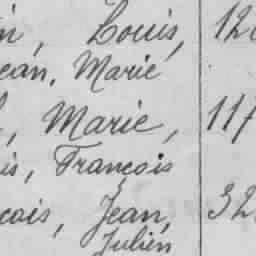 in, Louis, 12
ean, Marie
, Marie, 117
is, François
çois, Jean, 32
Julien